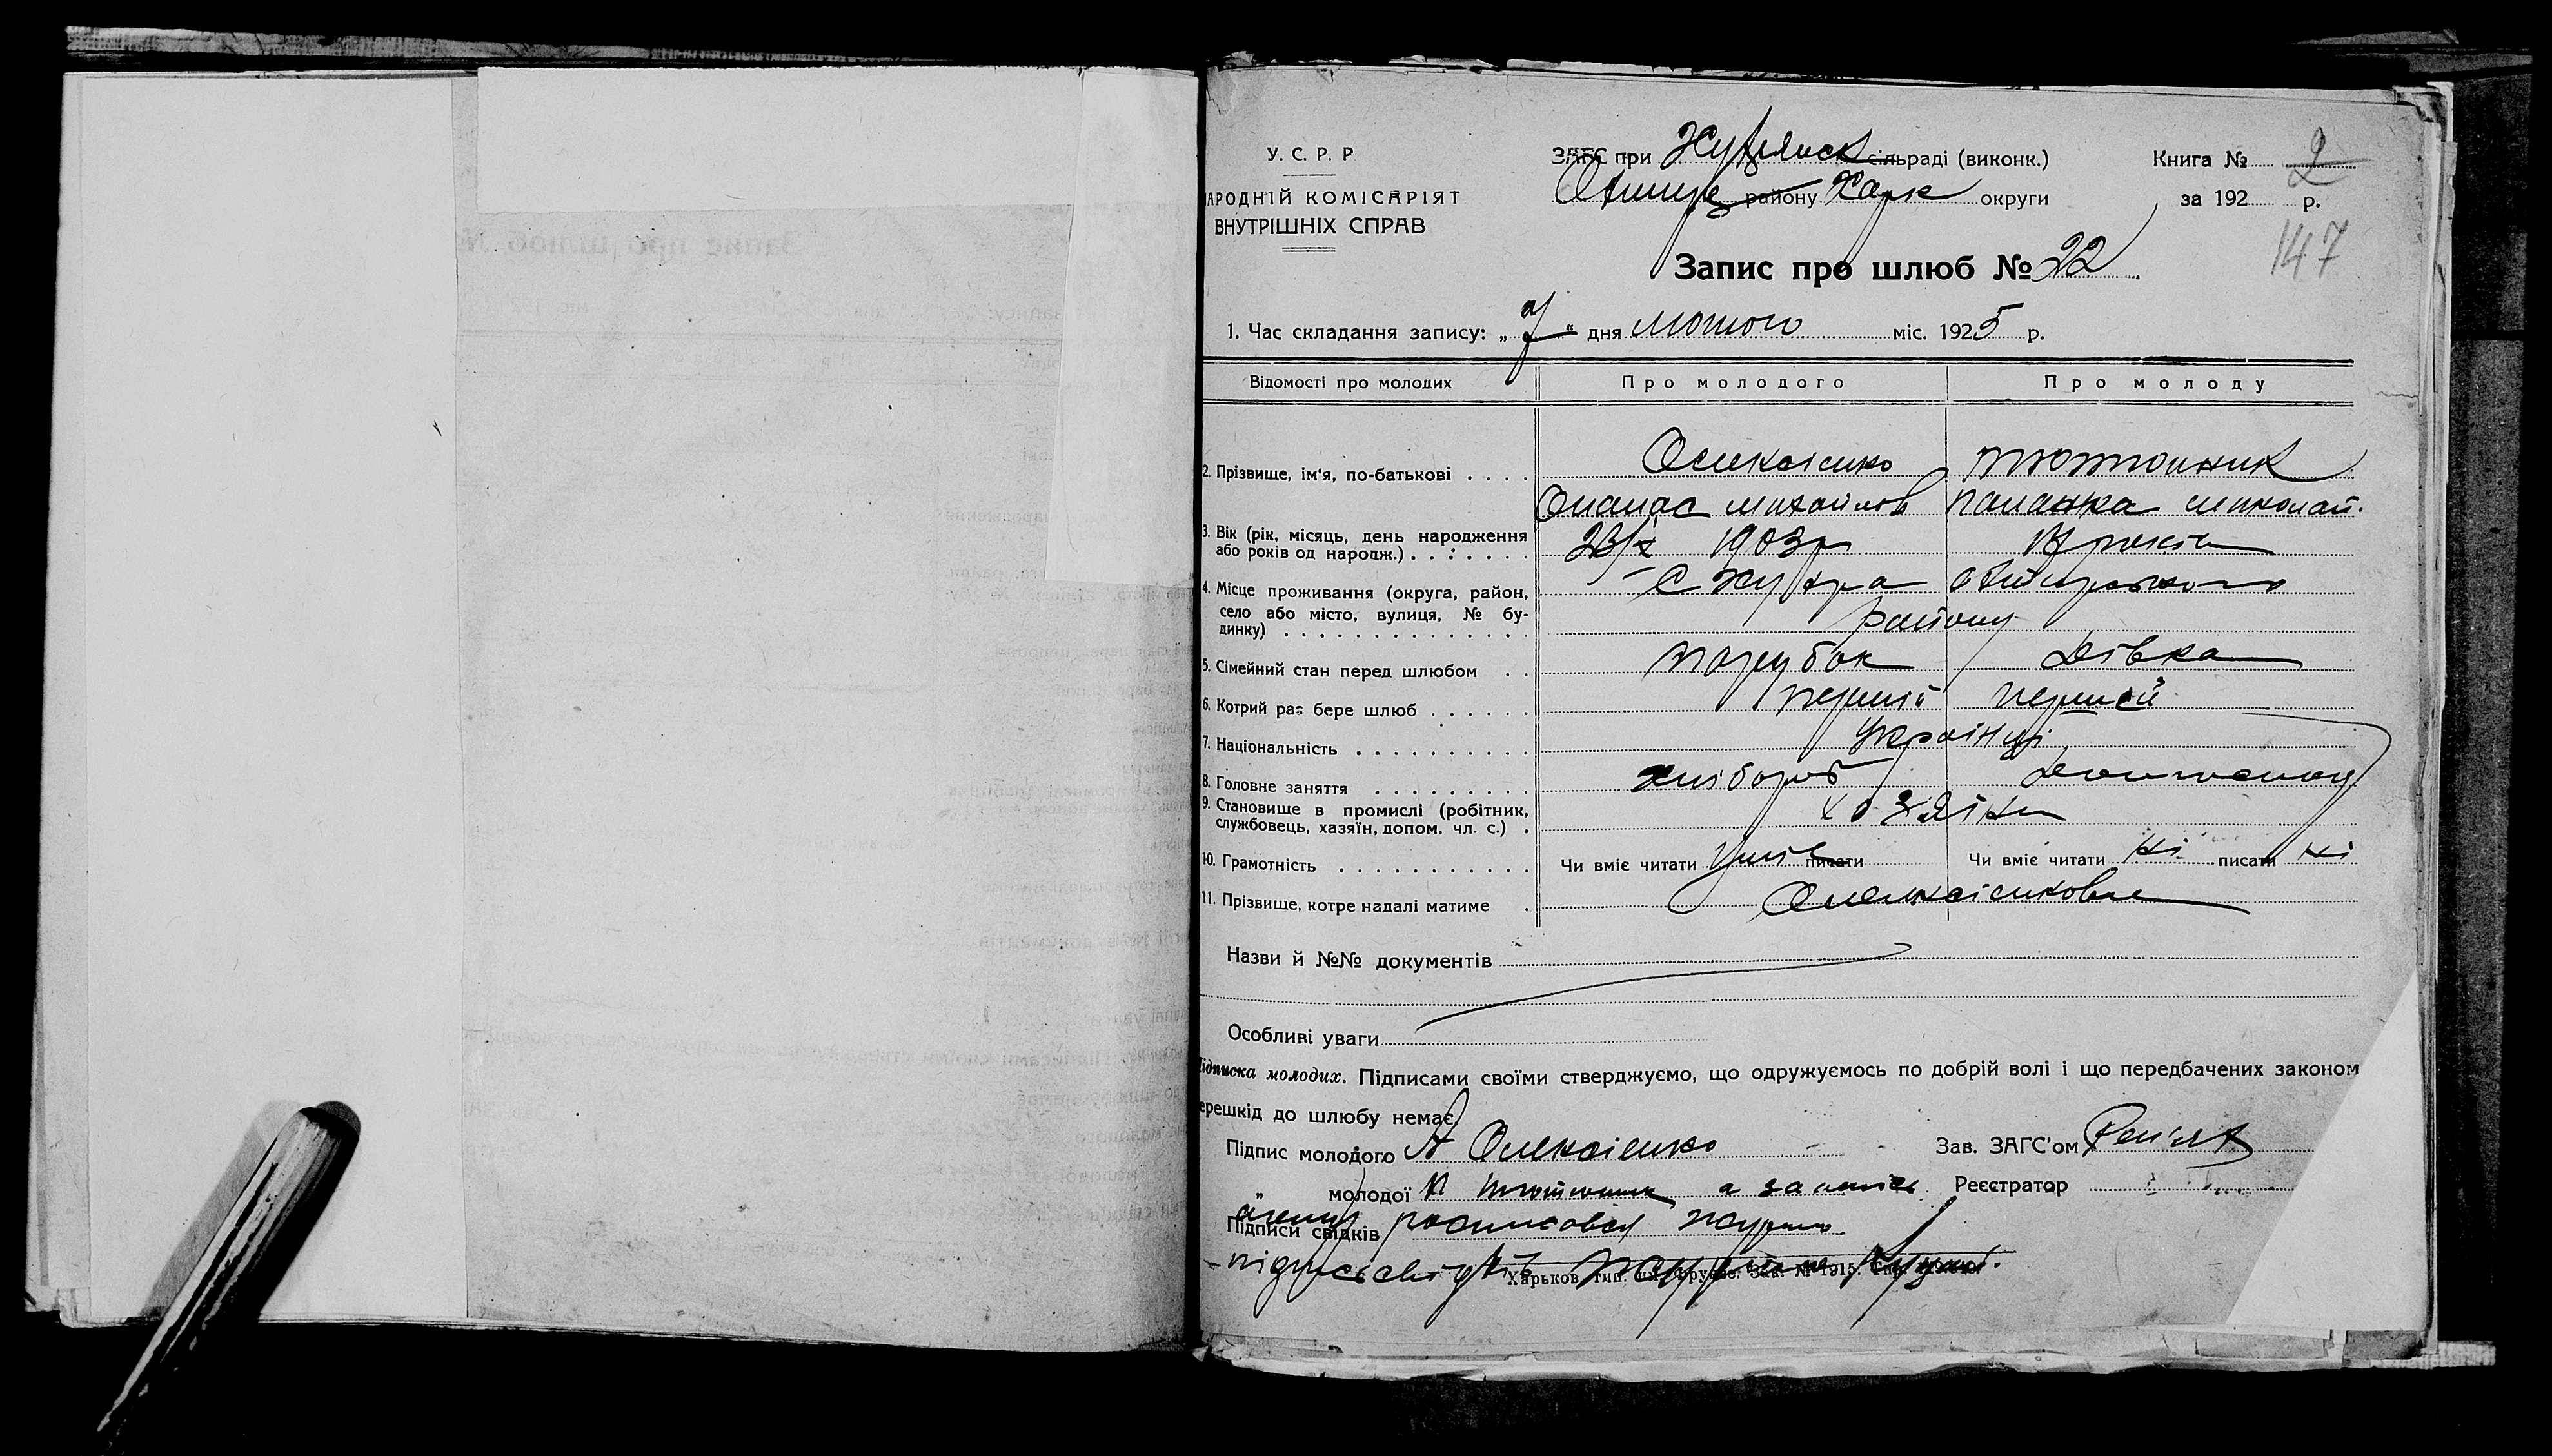 У. С. Р. Р
АРОДНІЙ КОМІСАРІЯТ
ВНУТРІШНІХ СПРАВ
ЗАГС при сільраді (виконк.)
району Харк округи
Книга № 2
за 192 р.
147
Запис про шлюб № 22
1. Час складання запису: „7“ дня лютого міс. 1925 р.
Відомості про молодих Про молодого Про молоду
2. Прізвище, ім'я, по-батькові . . . . Олексієнко Тютюнник
Опанас Михайлов Палажка Миколай.
3. Вік (рік, місяць, день народження
або років од народж.) . . : . . . . 23/X 1903 р років
4. Місце проживання (округа, район,
село або місто, вулиця, № бу-
динку) . . . . . . . . . . . . . . району
5. Сімейний стан перед шлюбом . . Парубок Дівка
6. Котрий раз бере шлюб . . . . . . перший перший
7. Національність . . . . . . . . . . Українці
8. Головне заняття . . . . . . . . . хлібороб
9. Становище в промислі (робітник,
службовець, хазяїн, допом. чл. с.) . хозяїни
10. Грамотність . . . . . . . . . . . Чи вміє читати уміє писати Чи вміє читати ні писати ні
11. Прізвище, котре надалі матиме . Олексієнкови
Назви й №№ документів
Особливі уваги
Підписка молодих. Підписами своїми стверджуємо, що одружуємось по добрій волі і що передбачених законом
ерешкід до шлюбу немає
Підпис молодого А Олексієнко Зав. ЗАГС'ом
„ молодої П Тютюнник а за Реєстратор
Підписи свідків росписовся
підпись свідків
Харьков, тип. Зак. № 1915.